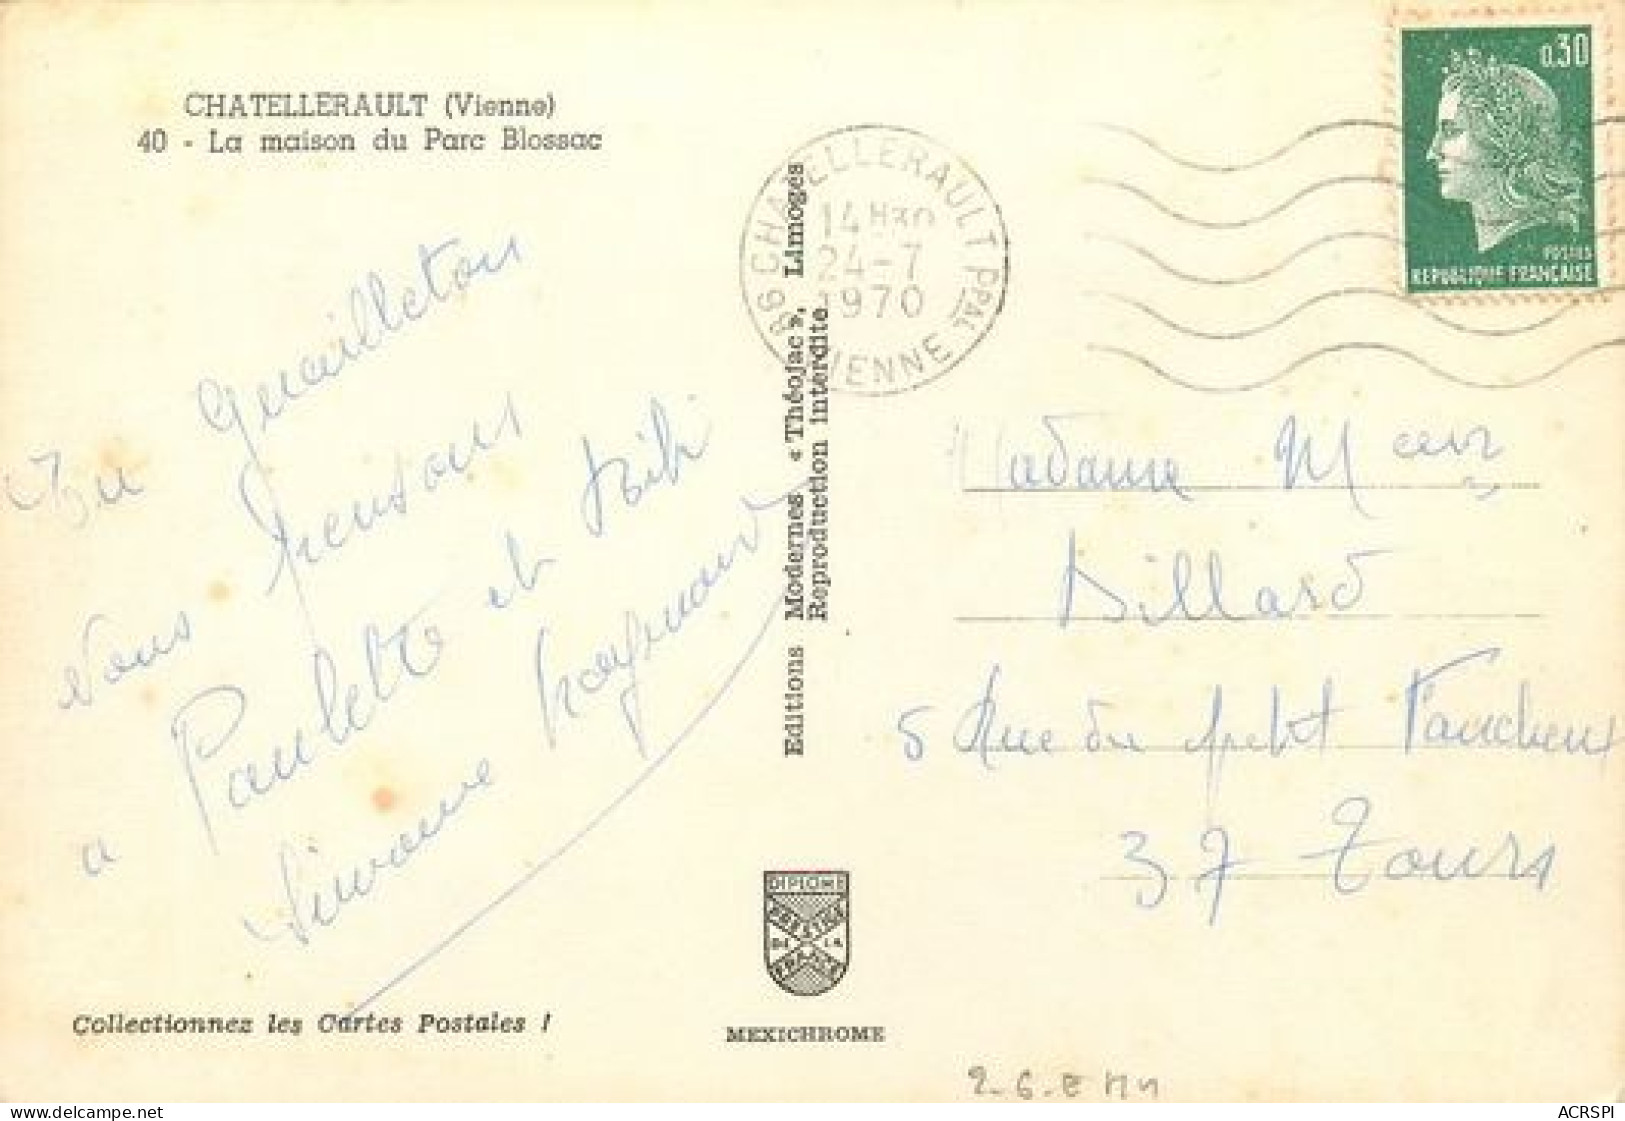 CHATELLERAULT (Vienne)
40 - La maison du Parc Blossac
nous pensons
a Paulette et
Simone Raymond
Editions Modernes « Théojac », Limoges
Reproduction interdite
86 CHATELLERAULT PPAL
14 H30
24-7
1970
VIENNE
0.30
POSTES
REPUBLIQUE FRANÇAISE
Madame
Billard
5 Rue du petit Faucheux
37 Tours
DIPLOME
PRESTIGE
DE LA
FRANCE
MEXICHROME
Collectionnez les Cartes Postales !
2-6-E
ACRSPI